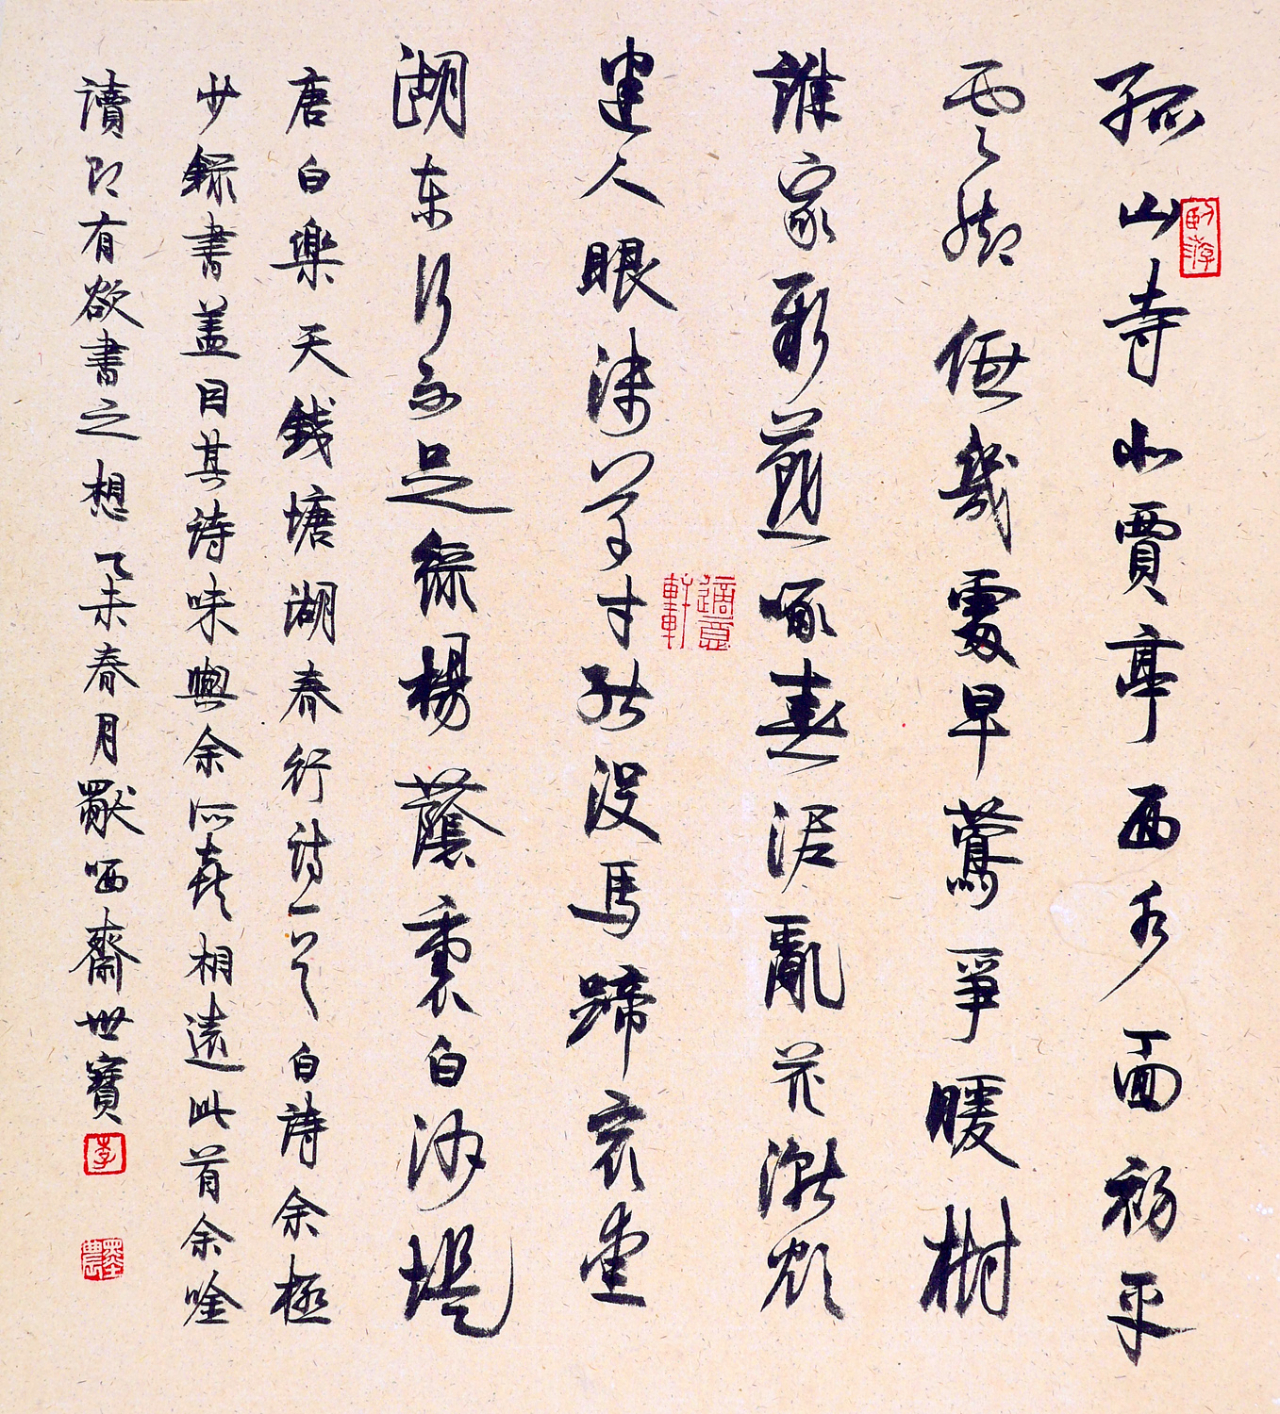 孤山寺北賈亭西水面初平
雲脚低幾處早鶯爭暖樹
誰家新燕啄春泥亂花漸欲
迷人眼淺草才能没馬蹄最愛
湖東行不足緑楊蔭裏白沙堤
唐白樂天錢塘湖春行詩一首白詩余極
少録書蓋因其詩味與余所喜相遠此首余唫
讀即有欲書之想乙未春月猒哂齋世寶
卧游
適意軒
李
墨農